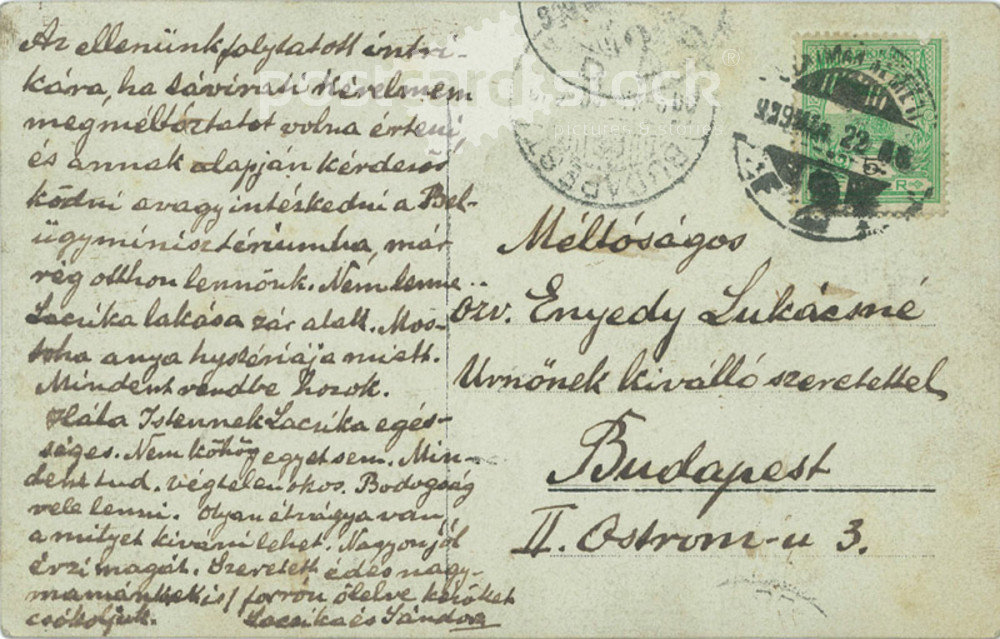 Az ellenünk folytatott intri-
kára, ha távirati kérelmem
megméltóztatot volna érteni
és annak alapján kérdezős
ködni avagy intézkedni a Bel-
ügyminisztériumba, már
rég otthon lennőnk. Nem lenne
Laczika lakása zár alatt. Mos-
toha anya hystériája miatt.
Mindent rendbe hozok.
Hála Istennek Laczika egés-
séges. Nem köhög egyet sem. Min-
dent tud. Végtelen okos. Bodogság
vele lenni. Olyan étvágya van
a milyet kivánni lehet. Nagyon jól
érzi magát. Szeretett édes nagy-
mamánkat is / forrón ölelve kezöket
csókoljuk. Laczika és Sándor
Méltóságos
özv. Enyedy Lukácsné
Urnőnek kiválló szeretettel
Budapest
II. Ostrom-u 3.
BUDAPEST
postcardstock
pictures & stories